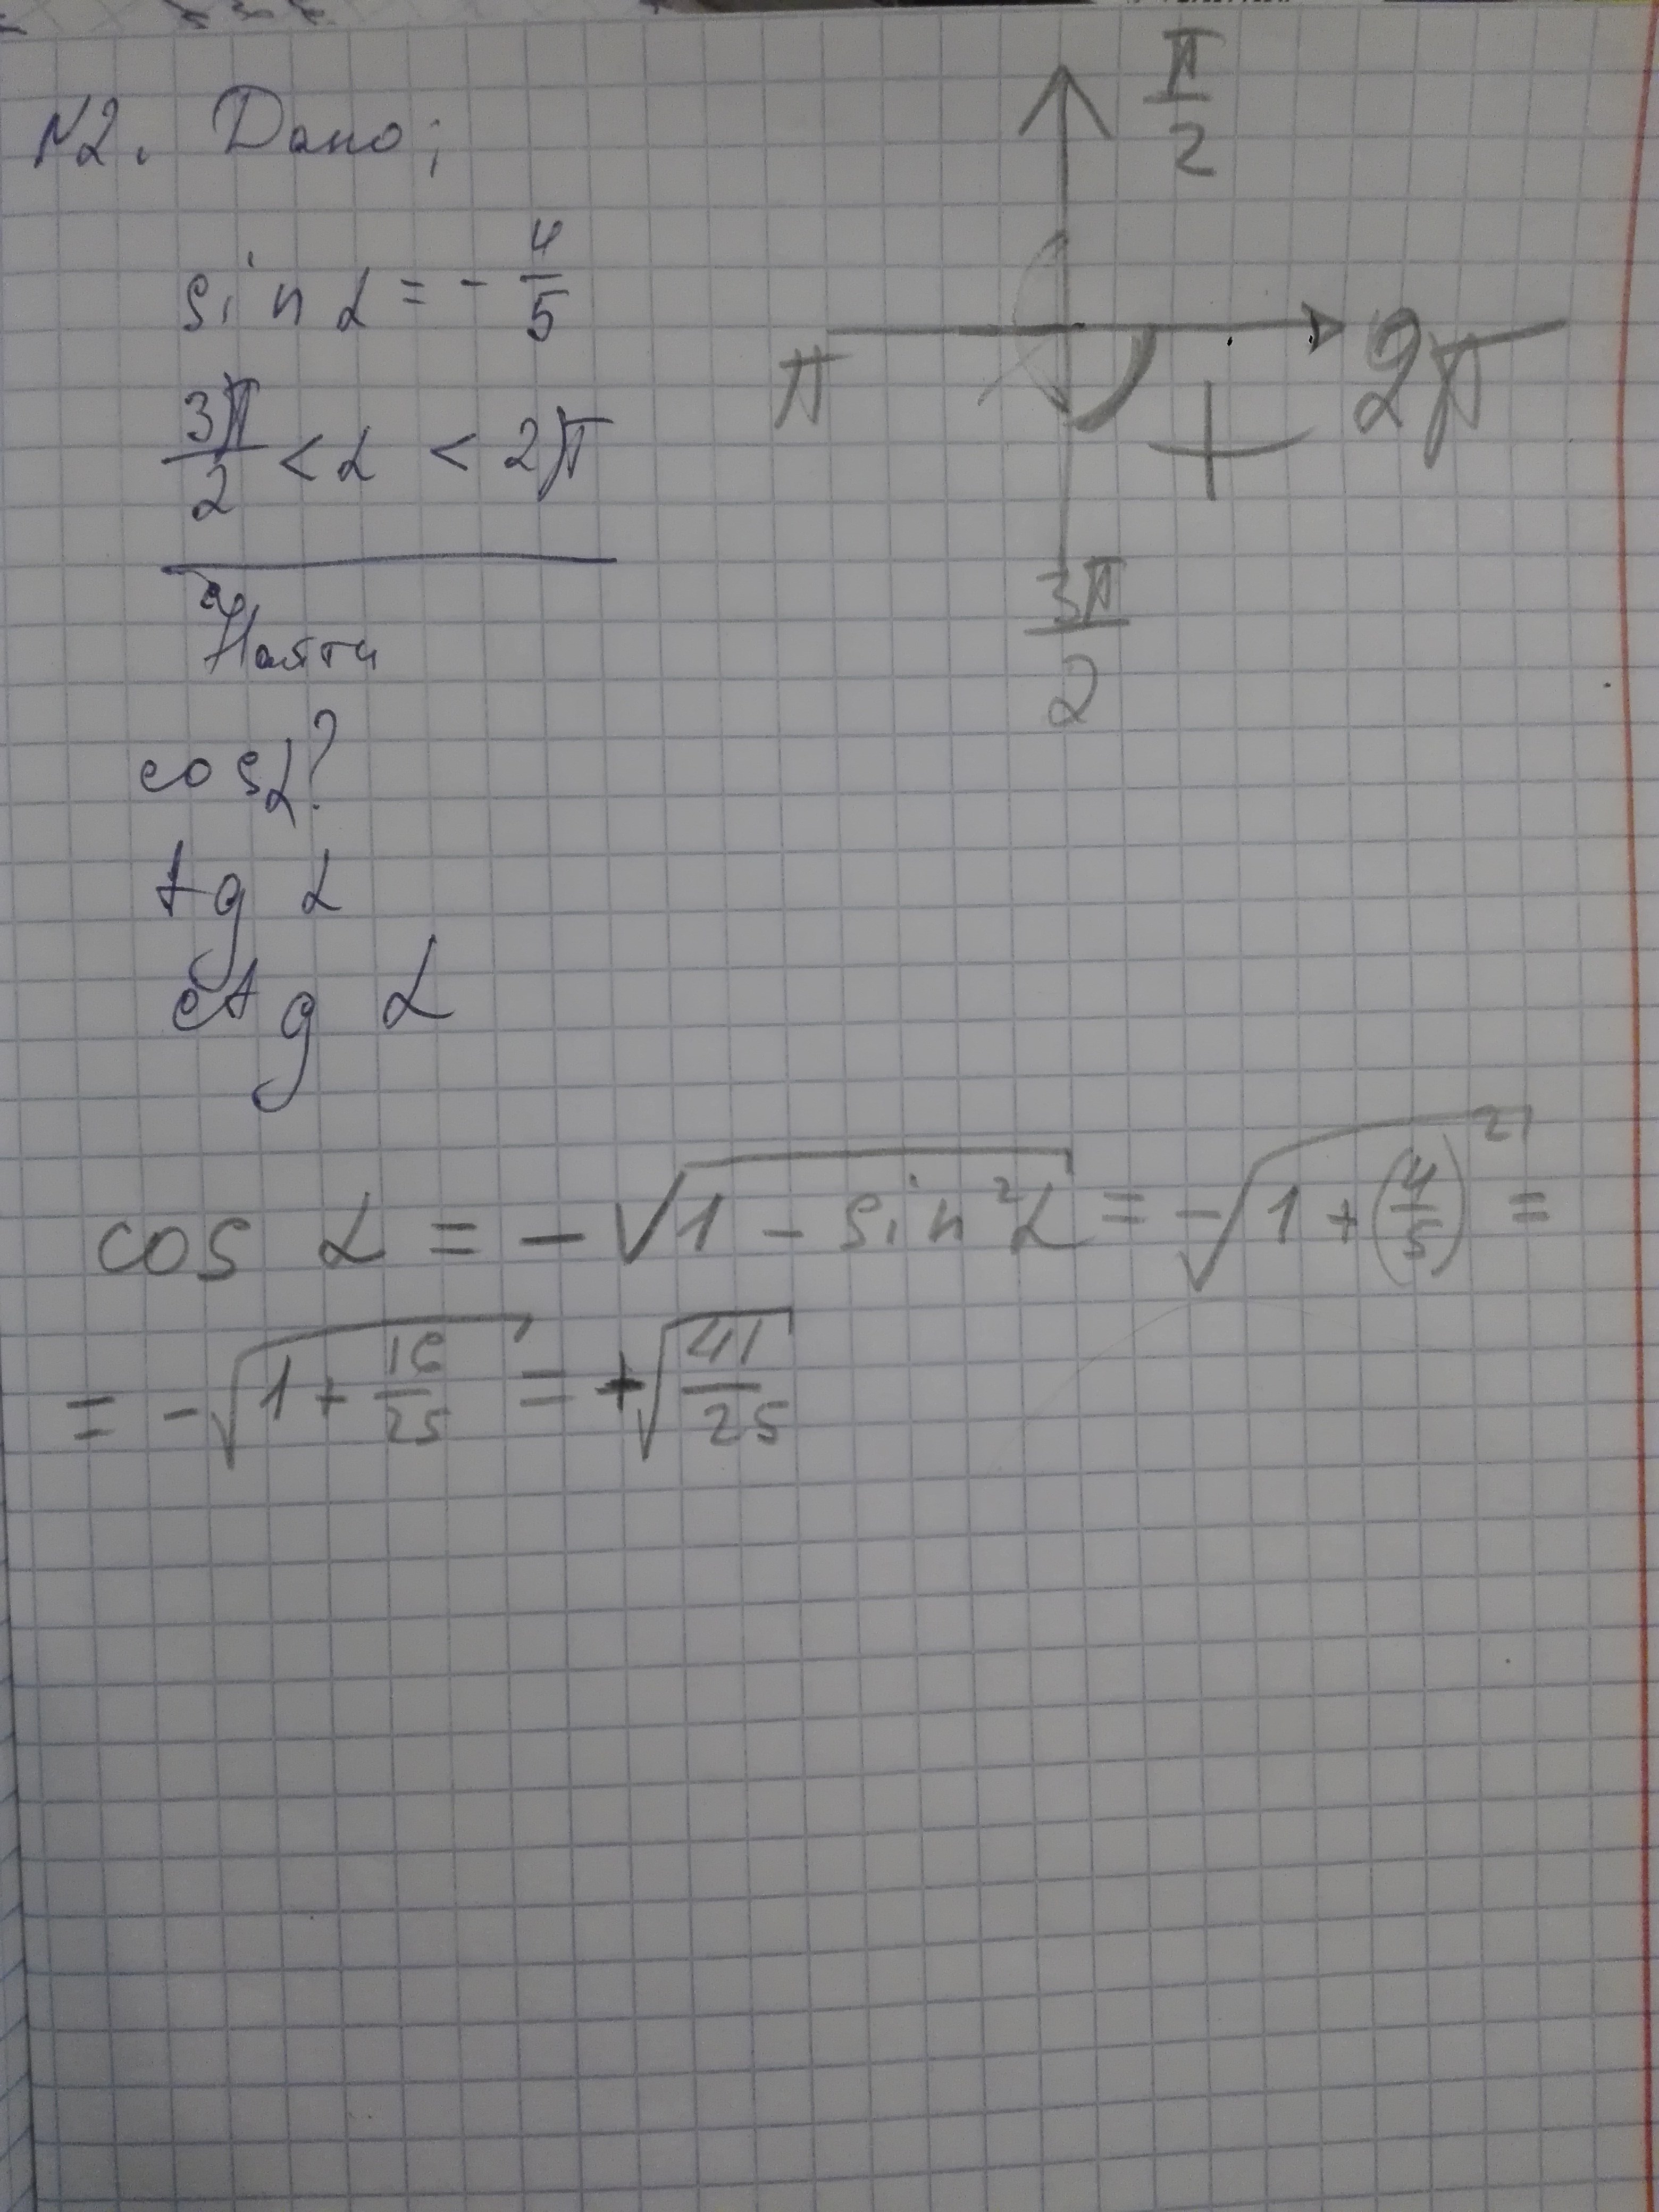 N2. Дано;
sin α = - 4/5
3π/2 < α < 2π
Найти
cos α?
tg α
ctg α
π/2
π
2π
+
3π/2
cos α = -√(1 - sin²α) = -√(1 + (4/5)²) =
= -√(1 + 16/25) = +√(41/25)